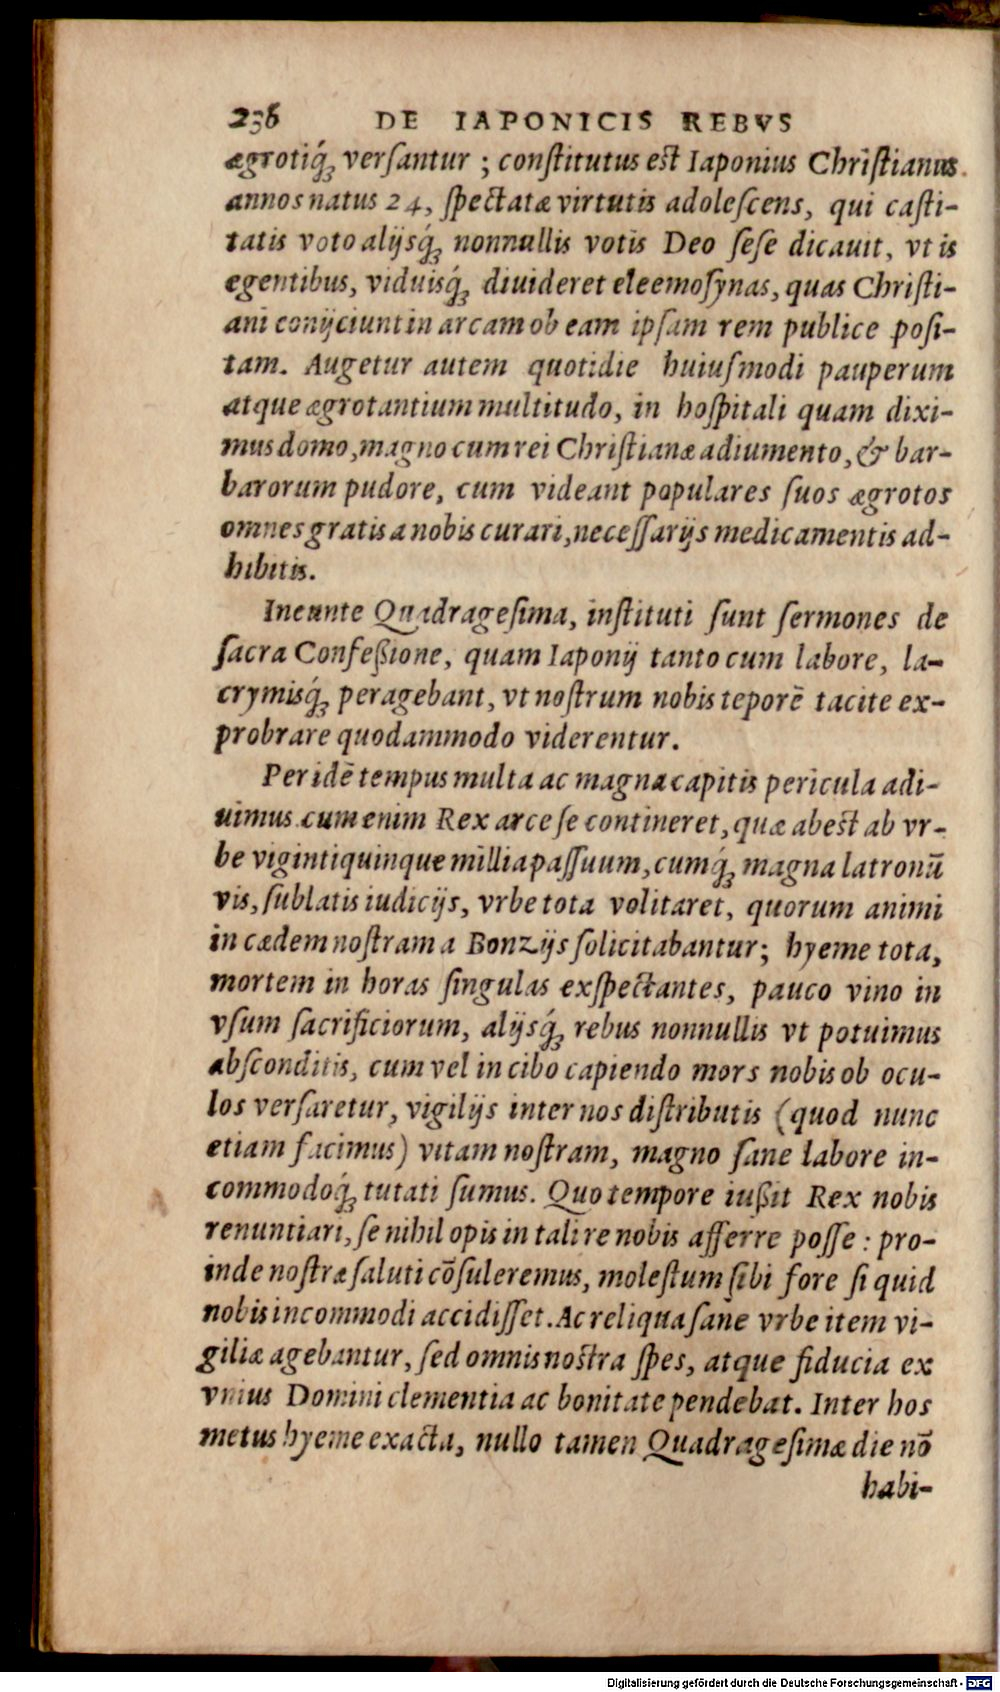 236 DE IAPONICIS REBVS
ægrotiq́ꝫ versantur ; constitutus est Iaponius Christianus
annos natus 24, spectatæ virtutis adolescens, qui casti-
tatis voto alijsq́ꝫ nonnullis votis Deo sese dicauit, vt is
egentibus, viduisq́ꝫ diuideret eleemosynas, quas Christi-
ani conijciunt in arcam ob eam ipsam rem publice posi-
tam. Augetur autem quotidie huiusmodi pauperum
atque ægrotantium multitudo, in hospitali quam dixi-
mus domo, magno cum rei Christianæ adiumento, & bar-
barorum pudore, cum videant populares suos ægrotos
omnes gratis a nobis curari, necessarijs medicamentis ad-
hibitis.
Ineunte Quadragesima, instituti sunt sermones de
sacra Confeßione, quam Iaponij tanto cum labore, la-
crymisq́ꝫ peragebant, vt nostrum nobis teporē tacite ex-
probrare quodammodo viderentur.
Per idē tempus multa ac magna capitis pericula adi-
uimus. cum enim Rex arce se contineret, quæ abest ab vr-
be vigintiquinque millia passuum, cumq́ꝫ magna latronū
vis, sublatis iudicijs, vrbe tota volitaret, quorum animi
in cædem nostram a Bonzijs solicitabantur; hyeme tota,
mortem in horas singulas exspectantes, pauco vino in
vsum sacrificiorum, alijsq́ꝫ rebus nonnullis vt potuimus
absconditis, cum vel in cibo capiendo mors nobis ob ocu-
los versaretur, vigilijs inter nos distributis (quod nunc
etiam facimus) vitam nostram, magno sane labore in-
commodoq́ꝫ tutati sumus. Quo tempore iußit Rex nobis
renuntiari, se nihil opis in tali re nobis afferre posse : pro-
inde nostræ saluti cōsuleremus, molestum sibi fore si quid
nobis incommodi accidisset. Ac reliqua sane vrbe item vi-
giliæ agebantur, sed omnis nostra spes, atque fiducia ex
vnius Domini clementia ac bonitate pendebat. Inter hos
metus hyeme exacta, nullo tamen Quadragesimæ die nō
habi-
Digitalisierung gefördert durch die Deutsche Forschungsgemeinschaft - DFG